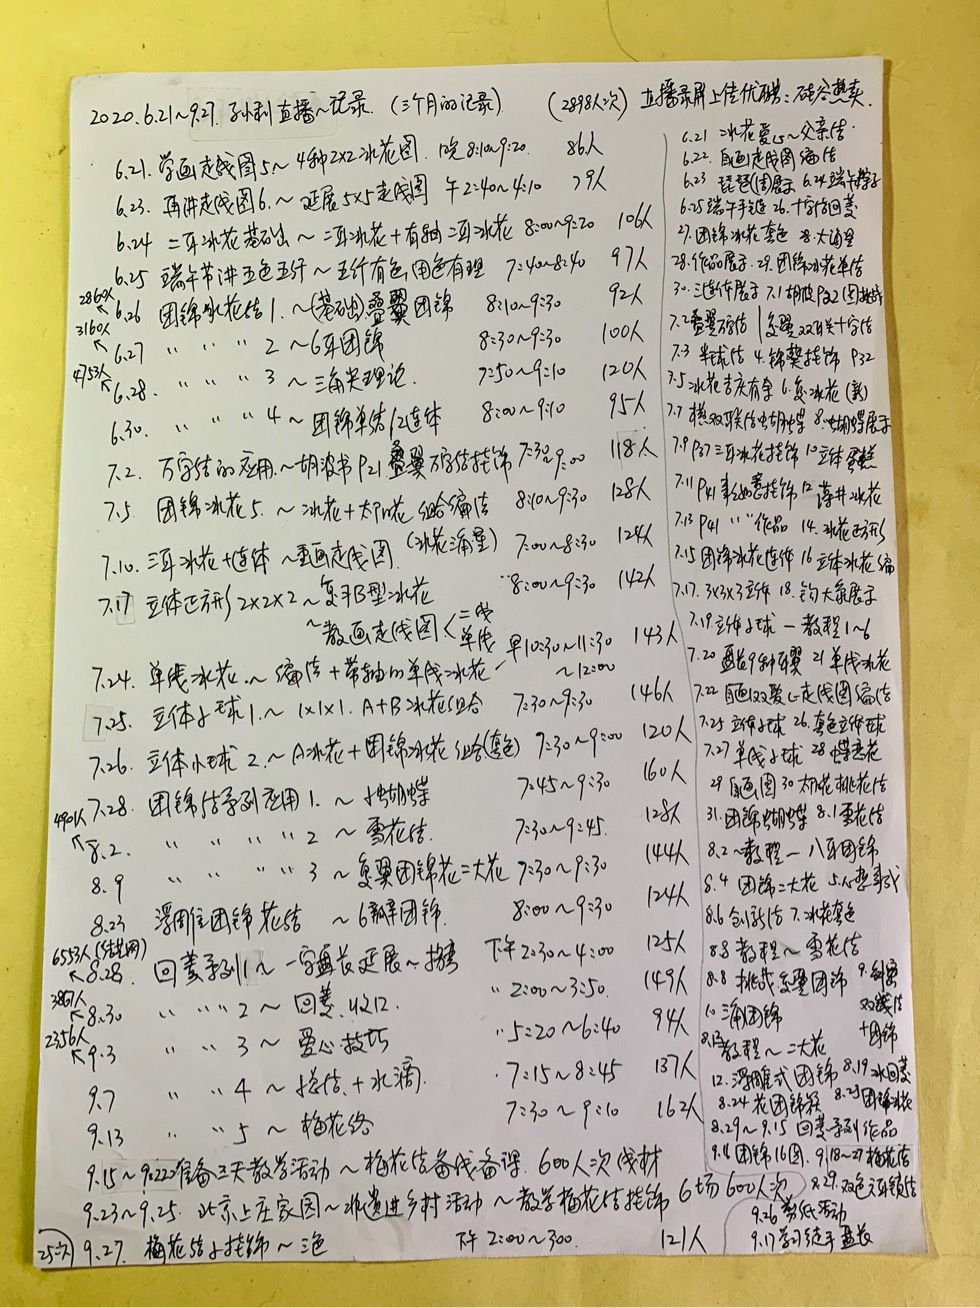 2020.6.21~9.27. 直播~记录. (三个月的记录) (2898人次) 直播录屏上传优酷:
6.21. 学画走线图5~4种2×2冰花图. 晚8:10~9:20. 86人
6.23. 再讲走线图6.~延展5×5走线图 午2:40~4:10 79人
6.24 二耳冰花基础~二耳冰花+有轴二耳冰花 8:00~9:20 106人
6.25 端午节讲五色五行~五行有色,用色有理 7:40~8:40 97人
2860人
6.26 团锦冰花结1.~(基础)叠翼团锦 8:10~9:30 92人
3160人
6.27 〃 〃 〃 2 ~6耳团锦 8:30~9:30 100人
4753人
6.28. 〃 〃 〃 3 ~三角尖理论. 7:50~9:10 120人
6.30. 〃 〃 〃 4 ~团锦单结/2连体 8:00~9:10 95人
7.2. 万字结的应用.~胡波书P21叠翼万字结挂饰 7:30~9:00 118人
7.5. 团锦冰花5.~冰花+太阳花组合编法 8:10~9:30 128人
7.10. 三耳冰花+连体~画走线图 7:00~8:30 124人
7.17 立体正方形2×2×2~复耳B型冰花 8:00~9:30 142人
~教画走线图<二线 单线 早10:30~11:30 ~12:00 143人
7.24. 单线冰花.~编法+带轴的单线冰花
7.25. 立体小球1.~1×1×1. A+B冰花组合 7:30~9:30 146人
7.26. 立体小球2.~A冰花+团锦冰花组合(套色) 7:30~9:00 120人
7.28. 团锦结系列应用1.~小蝴蝶 7:45~9:30 160人
4901人
8.2. 〃 〃 〃 〃 2 ~雪花结. 7:30~9:45. 128人
8.9 〃 〃 〃 〃 3 ~复翼团锦花二大花 7:30~9:30 144人
8.23 浮雕住团锦花结 ~6瓣单团锦. 8:00~9:30 124人
6553人
8.28. 回菱系列1~一字盘长延展~ 下午2:30~4:00 125人
3867人
8.30 〃 〃 〃 2~回菱. 〃 2:00~3:50. 149人
2356人
9.3 〃 〃 3~爱心技巧 〃 5:20~6:40 94人
9.7 〃 〃 4~ +水滴. 7:15~8:45 137人
9.13 〃 〃 5~梅花络 7:30~9:10 162人
9.15~9.22准备三天教学活动~梅花结备线备课. 600人次线材
9.23~9.25. 北京上庄家园~非遗进乡村活动~教学梅花结挂饰 6场600人次
25次 9.27. 梅花结小挂饰~三色 下午2:00~3:00. 121人
6.21 冰花爱心~父亲结
6.22. 自画走线图编法
6.23 琵琶(图)展示 6.24端午粽子
6.25端午手链 26.十字结回菱
27.团锦冰花套色
28.作品展示. 29.团锦冰花单结
30.三连体展示 7.1胡波P22(图)
7.2叠翼万字结
7.3 半球结 4.锦葵挂饰 P32
7.5冰花吉庆有余 6.复冰花
7.7 横双联结蝴蝶 8.蝴蝶展示
7.9 P37三耳冰花挂饰 10立体蛋糕
7.11 P41事事如意挂饰 12 藻井冰花
7.13 P41 〃〃作品 14. 冰花正方形
7.15团锦冰花连体 16立体冰花编
7.17. 3×3×3立体 18. 展示
7.19.立体小球一教程1~6
7.20 21单线冰花
7.22 自画双爱心走线图编法
7.25立体小球 26.套色立体球
7.27单线小球 28蝶恋花
29自画图 30 桃花结
31.团锦蝴蝶 8.1雪花结
8.2~教程一八耳团锦
8.4 团锦二大花
8.6创新结 7.冰花套色
8.8教程~雪花结
8.8 挑战复翼团锦
10 三角团锦 双线结+团锦
教程~二大花
12.浮雕式团锦 8.19冰回菱
8.24花团锦簇 8.25团锦冰花
8.29~9.15 回菱系列作品
9.16团锦16图. 9.18~27梅花结
8.29.双色六耳
9.26 剪纸活动
9.17 盘长